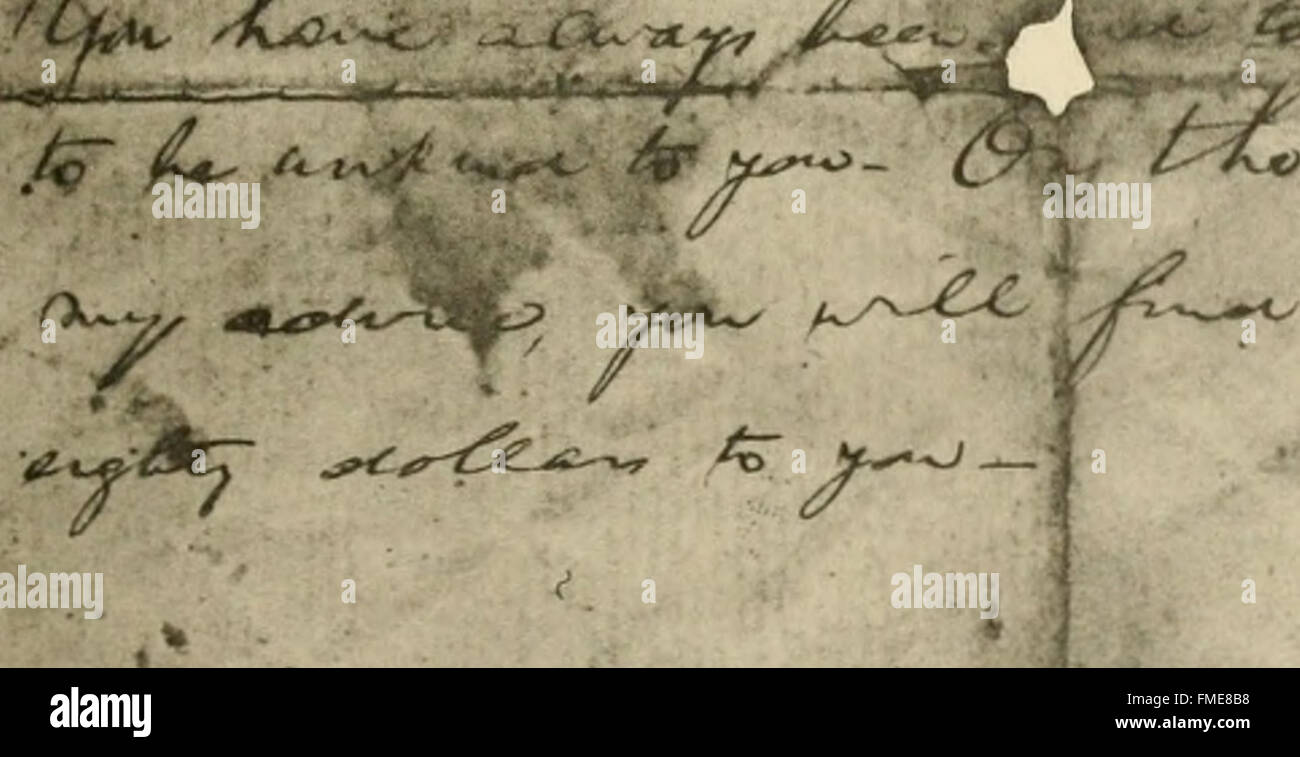 You have always been kind to
to be unkind to you - On tho
my advice, you will find
eighty dollars to you -
alamy
alamy
alamy
alamy
alamy
alamy
Image ID: FME8B8
www.alamy.com